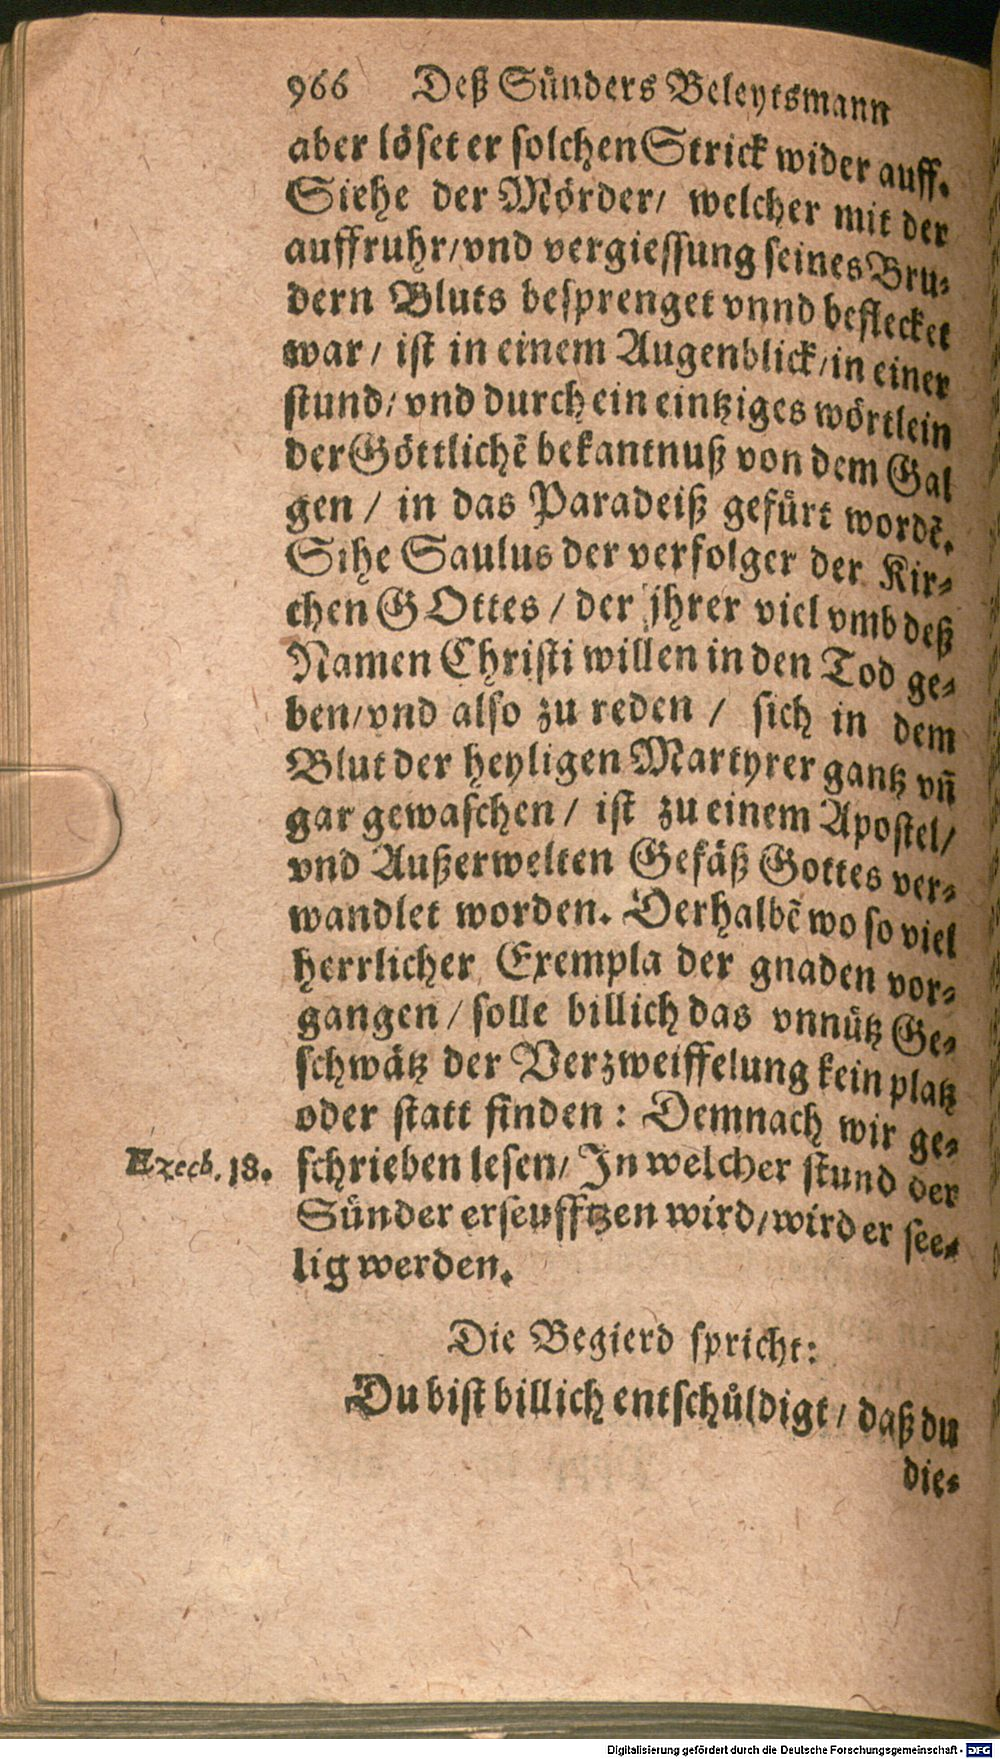 966 Deß Sünders Beleytsmann
aber löset er solchen Strick wider auff.
Siehe der Mörder/ welcher mit der
auffruhr/vnd vergiessung seines Bru-
dern Bluts besprenget vnnd beflecket
war/ ist in einem Augenblick/in einer
stund/ vnd durch ein eintziges wörtlein
der Göttlichẽ bekantnuß von dem Gal
gen / in das Paradeiß gefürt wordẽ.
Sihe Saulus der verfolger der Kir-
chen GOttes / der jhrer viel vmb deß
Namen Christi willen in den Tod ge-
ben/vnd also zu reden / sich in dem
Blut der heyligen Martyrer gantz vñ
gar gewaschen / ist zu einem Apostel/
vnd Außerwelten Gefäß Gottes ver-
wandlet worden. Derhalbẽ wo so viel
herrlicher Exempla der gnaden vor-
gangen / solle billich das vnnütz Ge-
schwätz der Verzweiffelung kein platz
oder statt finden : Demnach wir ge-
Ezech. 18. schrieben lesen/ In welcher stund der
Sünder erseufftzen wird/wird er see-
lig werden.
Die Begierd spricht:
Du bist billich entschüldigt / daß du
die-
Digitalisierung gefördert durch die Deutsche Forschungsgemeinschaft - DFG